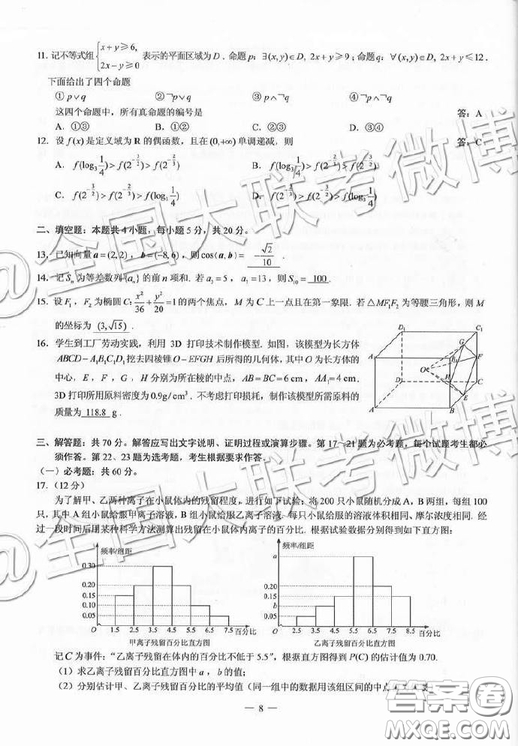 11. 记不等式组{x+y⩾6, 2x−y⩾0 表示的平面区域为D. 命题p: ∃(x,y)∈D, 2x+y⩾9; 命题q: ∀(x,y)∈D, 2x+y⩽12.
下面给出了四个命题
① p∨q ② ¬p∨q ③ p∧¬q ④ ¬p∧¬q
这四个命题中, 所有真命题的编号是 答: A
A. ①③ B. ①② C. ②③ D. ③④
12. 设 f(x) 是定义域为 R 的偶函数, 且在 (0,+∞) 单调递减. 则 答: C
A. f(log₃ 1/4) > f(2^(-3/2)) > f(2^(-2/3)) B. f(log₃ 1/4) > f(2^(-2/3)) > f(2^(-3/2))
C. f(2^(-3/2)) > f(2^(-2/3)) > f(log₃ 1/4) D. f(2^(-2/3)) > f(2^(-3/2)) > f(log₃ 1/4)
二、填空题: 本题共 4 小题, 每小题 5 分, 共 20 分.
13. 已知向量 a=(2,2), b=(-8,6), 则 cos⟨a,b⟩= -√2/10 .
14. 记 Sₙ 为等差数列{aₙ}的前 n 项和. 若 a₃=5, a₇=13, 则 S₁₀= 100 .
15. 设 F₁, F₂ 为椭圆 C: x²/36+y²/20=1 的两个焦点, M 为 C 上一点且在第一象限. 若 △MF₁F₂ 为等腰三角形, 则 M
的坐标为 (3,√15) .
16. 学生到工厂劳动实践, 利用 3D 打印技术制作模型. 如图, 该模型为长方体
ABCD−A₁B₁C₁D₁ 挖去四棱锥 O−EFGH 后所得的几何体, 其中 O 为长方体的
中心, E, F, G, H 分别为所在棱的中点, AB=BC=6 cm, AA₁=4 cm.
3D 打印所用原料密度为 0.9g/cm³. 不考虑打印损耗, 制作该模型所需原料的
质量为 118.8 g.
三、解答题: 共 70 分. 解答应写出文字说明、证明过程或演算步骤. 第 17~21 题为必考题, 每个试题考生都必
须作答. 第 22、23 题为选考题, 考生根据要求作答.
(一) 必考题: 共 60 分.
17. (12 分)
为了解甲、乙两种离子在小鼠体内的残留程度, 进行如下试验: 将 200 只小鼠随机分成 A, B 两组, 每组 100
只, 其中 A 组小鼠给服甲离子溶液, B 组小鼠给服乙离子溶液. 每只小鼠给服的溶液体积相同、摩尔浓度相同. 经
过一段时间后用某种科学方法测算出残留在小鼠体内离子的百分比. 根据试验数据分别得到如下直方图:
频率/组距
0.30
0.20
0.15
0.10
0.05
O 1.5 2.5 3.5 4.5 5.5 6.5 7.5 百分比
甲离子残留百分比直方图
频率/组距
a
0.20
0.15
b
0.05
O 2.5 3.5 4.5 5.5 6.5 7.5 8.5 百分比
乙离子残留百分比直方图
记 C 为事件: “乙离子残留在体内的百分比不低于 5.5”, 根据直方图得到 P(C) 的估计值为 0.70.
(1) 求乙离子残留百分比直方图中 a, b 的值;
(2) 分别估计甲、乙离子残留百分比的平均值 (同一组中的数据用该组区间的中点
— 8 —
@全国大联考微博
@全国大联考微博
答案圈
MXQE.COM